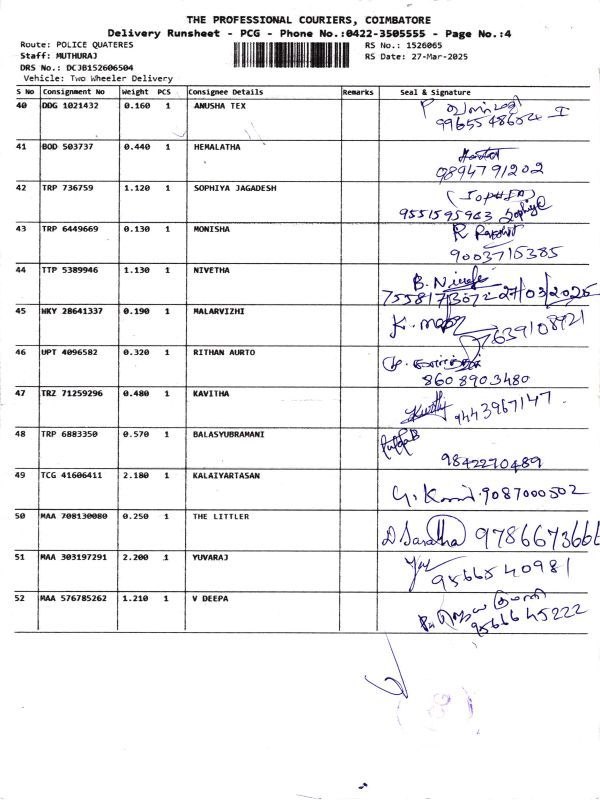 THE PROFESSIONAL COURIERS, COIMBATORE
Delivery Runsheet - PCG - Phone No.:0422-3505555 - Page No.:4
Route: POLICE QUATERES
RS No.: 1526065
Staff: MUTHURAJ
RS Date: 27-Mar-2025
DRS No.: DCJB152606504
Vehicle: Two Wheeler Delivery
S No Consignment No Weight PCS Consignee Details Remarks Seal & Signature
40 DDG 1021432 0.160 1 ANUSHA TEX
9965548654
41 BOD 503737 0.440 1 HEMALATHA
9894791202
42 TRP 736759 1.120 1 SOPHIYA JAGADESH
(SOPHIA)
9551595943 Sophiya
43 TRP 6449669 0.130 1 MONISHA
R
9003715385
44 TTP 5389946 1.130 1 NIVETHA
B. Nivetha
7558173072 27/03/2025
45 WKY 28641337 0.190 1 MALARVIZHI
K.
7639108921
46 UPT 4096582 0.320 1 RITHAN AURTO
8608903480
47 TRZ 71259296 0.480 1 KAVITHA
9443967147
48 TRP 6883350 0.570 1 BALASYUBRAMANI
9842270489
49 TCG 41606411 2.180 1 KALAIYARTASAN
9087000502
50 MAA 708130080 0.250 1 THE LITTLER
D Saratha 9786673666
51 MAA 303197291 2.200 1 YUVARAJ
9566540981
52 MAA 576785262 1.210 1 V DEEPA
9566645222